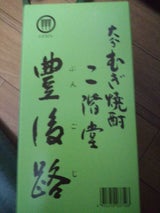 大分むぎ焼酎
二階堂
豊後路
ぶんごじ